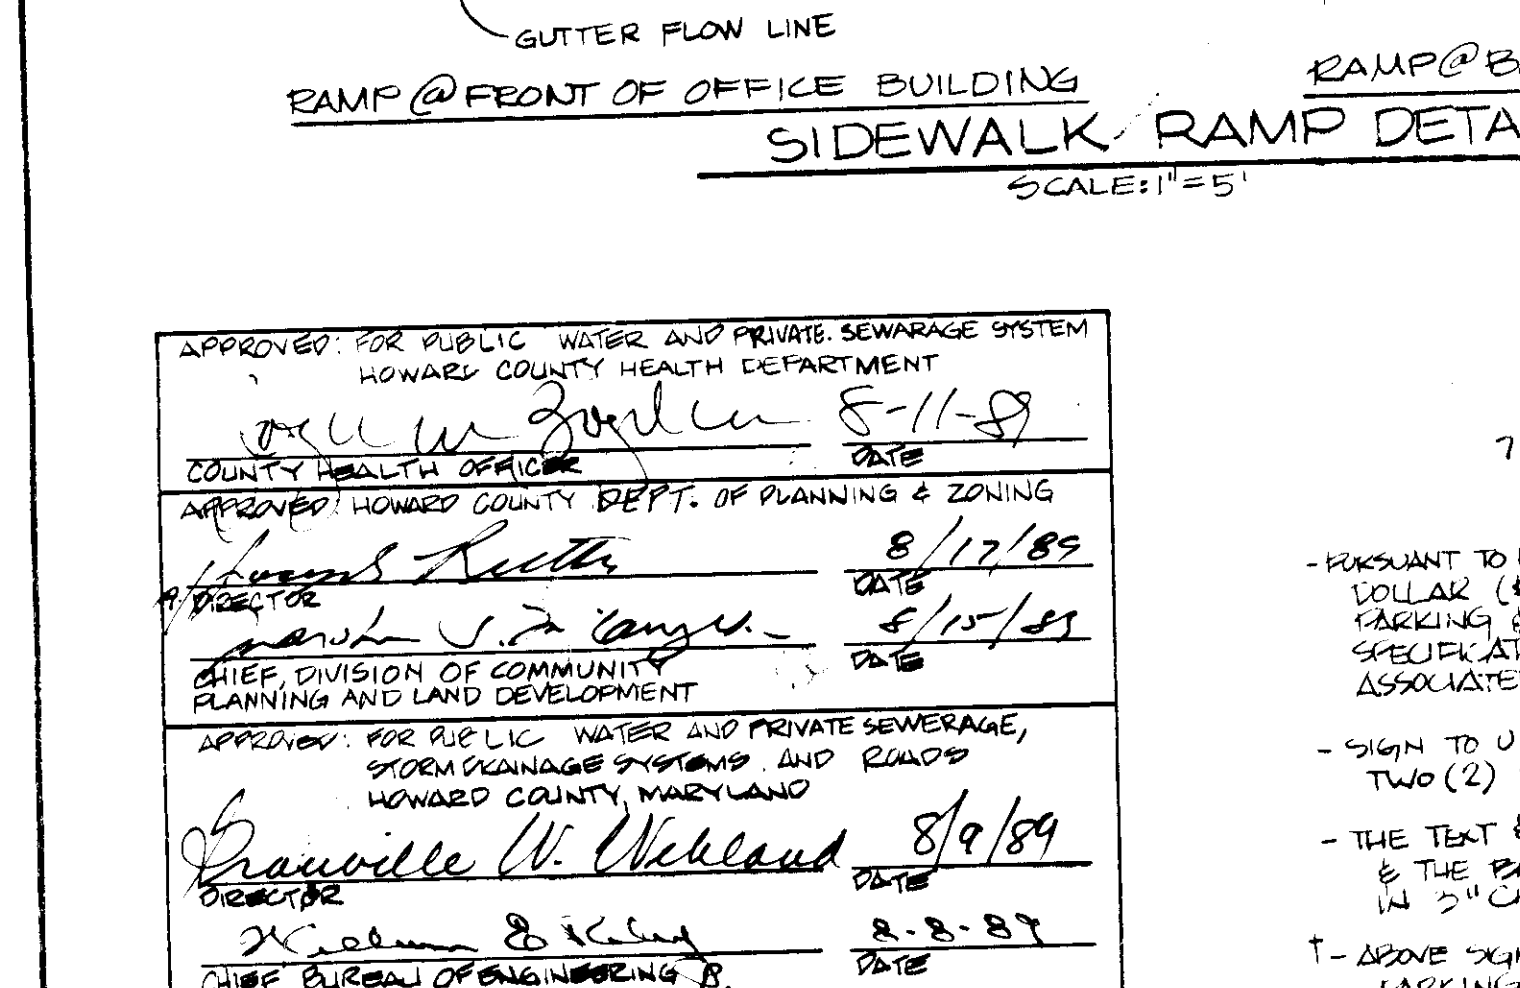 GUTTER FLOW LINE
RAMP @ FRONT OF OFFICE BUILDING
RAMP @ B
SIDEWALK RAMP DETA
SCALE: 1" = 5'
APPROVED: FOR PUBLIC WATER AND PRIVATE. SEWARAGE SYSTEM
HOWARD COUNTY HEALTH DEPARTMENT
8-11-89
COUNTY HEALTH OFFICER
DATE
APPROVED: HOWARD COUNTY DEPT. OF PLANNING & ZONING
8/17/89
DIRECTOR
DATE
8/15/89
CHIEF, DIVISION OF COMMUNITY
PLANNING AND LAND DEVELOPMENT
DATE
APPROVED: FOR PUBLIC WATER AND PRIVATE SEWERAGE,
STORM DRAINAGE SYSTEMS AND ROADS
HOWARD COUNTY, MARYLAND
Granville W. Wehland 8/9/89
DIRECTOR
DATE
8-8-89
CHIEF BUREAU OF ENGINEERING
DATE
7
- PURSUANT TO
DOLLAR ($
PARKING &
SPECIFICAT
ASSOCIATE
- SIGN TO U
TWO (2)
- THE TEXT &
& THE BA
IN 3" C
† - ABOVE SIGN
PARKING